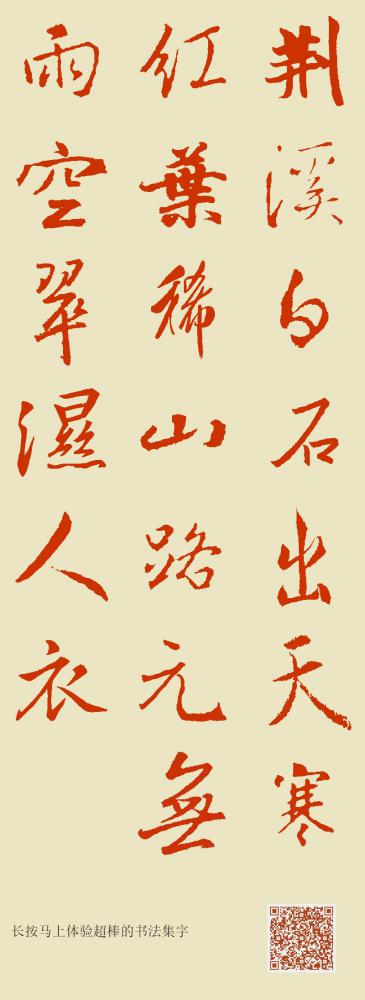 荆溪白石出天寒
红葉稀山路元無
雨空翠濕人衣
长按马上体验超棒的书法集字